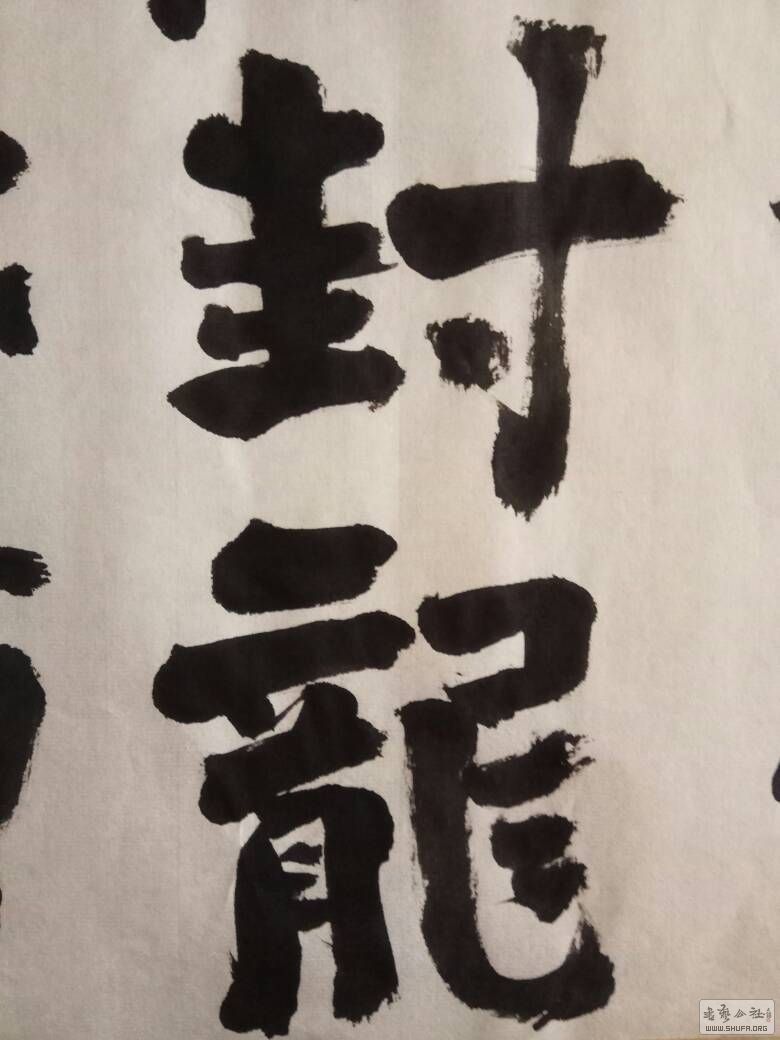 封龍
書藝公社
WWW.SHUFA.ORG